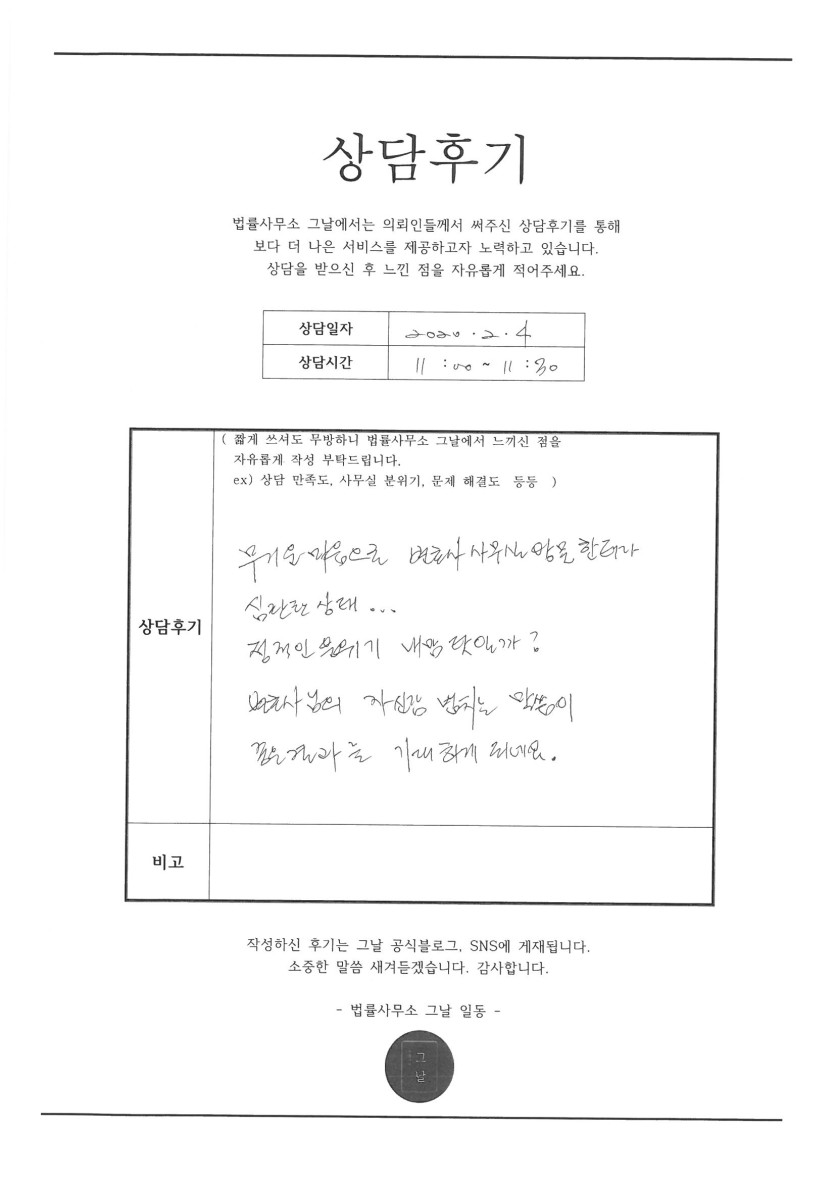 상담후기
법률사무소 그날에서는 의뢰인들께서 써주신 상담후기를 통해
보다 더 나은 서비스를 제공하고자 노력하고 있습니다.
상담을 받으신 후 느낀 점을 자유롭게 적어주세요.
상담일자 2020.2.4
상담시간 11:00 ~ 11:30
( 짧게 쓰셔도 무방하니 법률사무소 그날에서 느끼신 점을
자유롭게 작성 부탁드립니다.
ex) 상담 만족도, 사무실 분위기, 문제 해결도 등등 )
상담후기
무거운 마음으로 변호사 사무실 방문 한터라
심란한 상태...
정적인 분위기 내맘 탓일까?
변호사님의 자신감 넘치는 말씀이
좋은결과를 기대하게 되네요.
비고
작성하신 후기는 그날 공식블로그, SNS에 게재됩니다.
소중한 말씀 새겨듣겠습니다. 감사합니다.
- 법률사무소 그날 일동 -
그
날